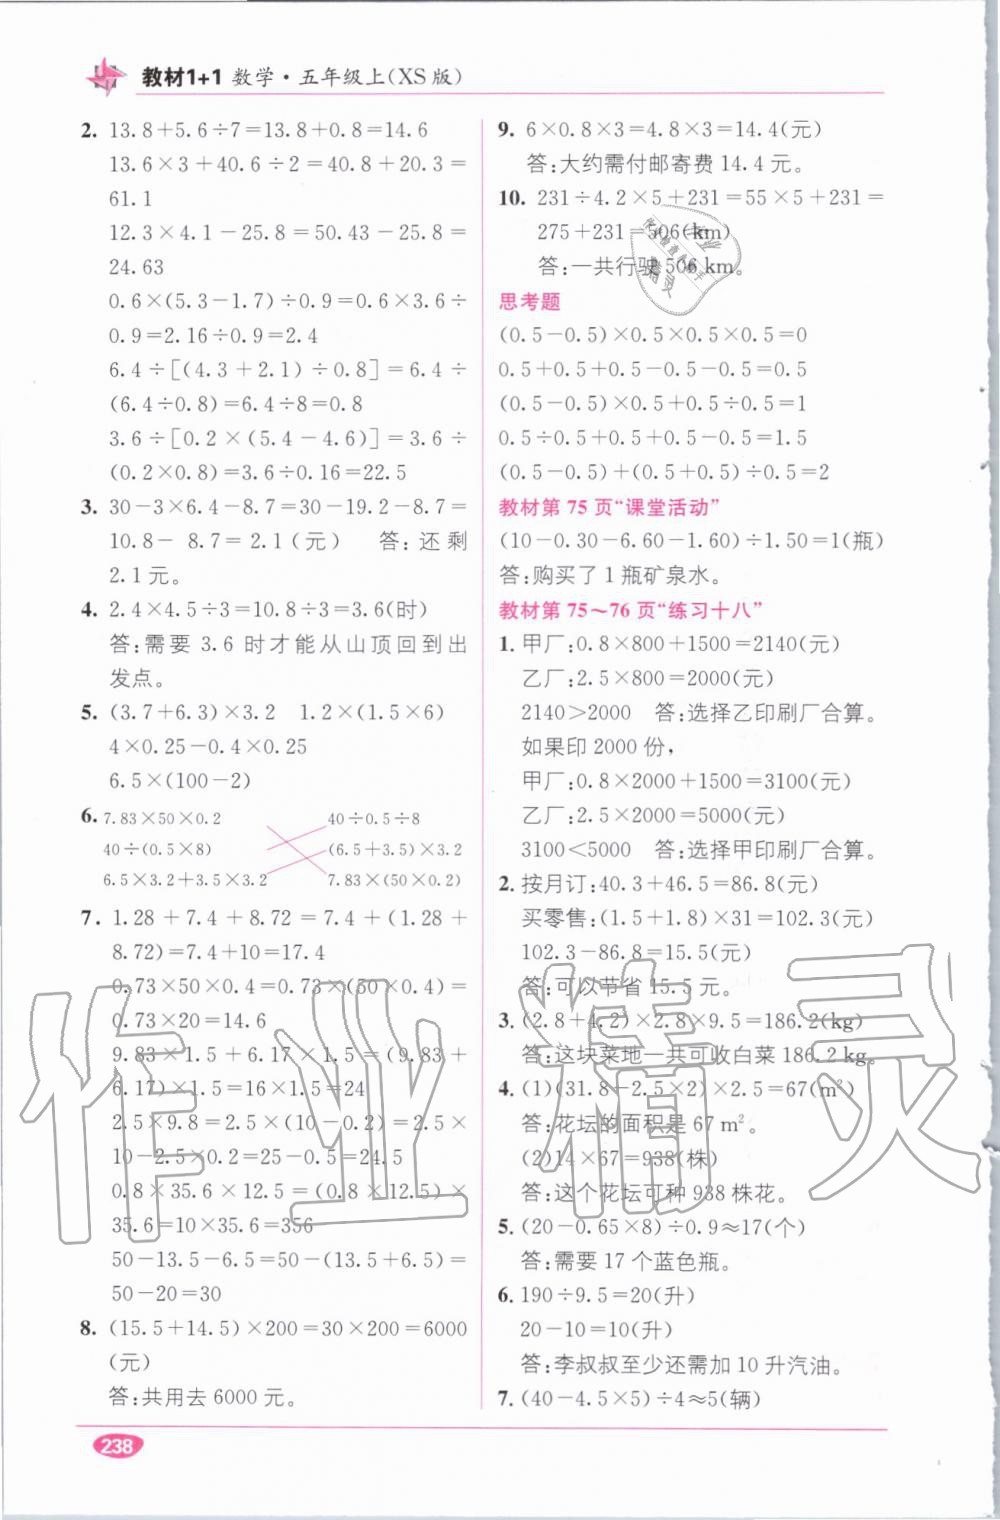 教材1+1 数学·五年级上(XS版)
2. 13.8+5.6÷7=13.8+0.8=14.6
13.6×3+40.6÷2=40.8+20.3=
61.1
12.3×4.1-25.8=50.43-25.8=
24.63
0.6×(5.3-1.7)÷0.9=0.6×3.6÷
0.9=2.16÷0.9=2.4
6.4÷[(4.3+2.1)÷0.8]=6.4÷
(6.4÷0.8)=6.4÷8=0.8
3.6÷[0.2×(5.4-4.6)]=3.6÷
(0.2×0.8)=3.6÷0.16=22.5
3. 30-3×6.4-8.7=30-19.2-8.7=
10.8- 8.7=2.1(元) 答:还剩
2.1元。
4. 2.4×4.5÷3=10.8÷3=3.6(时)
答:需要3.6时才能从山顶回到出
发点。
5. (3.7+6.3)×3.2 1.2×(1.5×6)
4×0.25-0.4×0.25
6.5×(100-2)
6. 7.83×50×0.2 40÷0.5÷8
40÷(0.5×8) (6.5+3.5)×3.2
6.5×3.2+3.5×3.2 7.83×(50×0.2)
7. 1.28+7.4+8.72=7.4+(1.28+
8.72)=7.4+10=17.4
0.73×50×0.4=0.73×(50×0.4)=
0.73×20=14.6
9.83×1.5+6.17×1.5=(9.83+
6.17)×1.5=16×1.5=24
2.5×9.8=2.5×(10-0.2)=2.5×
10-2.5×0.2=25-0.5=24.5
0.8×35.6×12.5=(0.8×12.5)×
35.6=10×35.6=356
50-13.5-6.5=50-(13.5+6.5)=
50-20=30
8. (15.5+14.5)×200=30×200=6000
(元)
答:共用去6000元。
9. 6×0.8×3=4.8×3=14.4(元)
答:大约需付邮寄费14.4元。
10. 231÷4.2×5+231=55×5+231=
275+231=506(km)
答:一共行驶506 km。
思考题
(0.5-0.5)×0.5×0.5×0.5=0
0.5+0.5+0.5-0.5-0.5=0.5
(0.5-0.5)×0.5+0.5÷0.5=1
0.5÷0.5+0.5+0.5-0.5=1.5
(0.5-0.5)+(0.5+0.5)÷0.5=2
教材第75页“课堂活动”
(10-0.30-6.60-1.60)÷1.50=1(瓶)
答:购买了1瓶矿泉水。
教材第75~76页“练习十八”
1. 甲厂:0.8×800+1500=2140(元)
乙厂:2.5×800=2000(元)
2140>2000 答:选择乙印刷厂合算。
如果印2000份,
甲厂:0.8×2000+1500=3100(元)
乙厂:2.5×2000=5000(元)
3100<5000 答:选择甲印刷厂合算。
2. 按月订:40.3+46.5=86.8(元)
买零售:(1.5+1.8)×31=102.3(元)
102.3-86.8=15.5(元)
答:可以节省15.5元。
3. (2.8+4.2)×2.8×9.5=186.2(kg)
答:这块菜地一共可收白菜186.2 kg。
4. (1)(31.8-2.5×2)×2.5=67(m²)
答:花坛的面积是67 m²。
(2)14×67=938(株)
答:这个花坛可种938株花。
5. (20-0.65×8)÷0.9≈17(个)
答:需要17个蓝色瓶。
6. 190÷9.5=20(升)
20-10=10(升)
答:李叔叔至少还需加10升汽油。
7. (40-4.5×5)÷4≈5(辆)
238
作业精灵